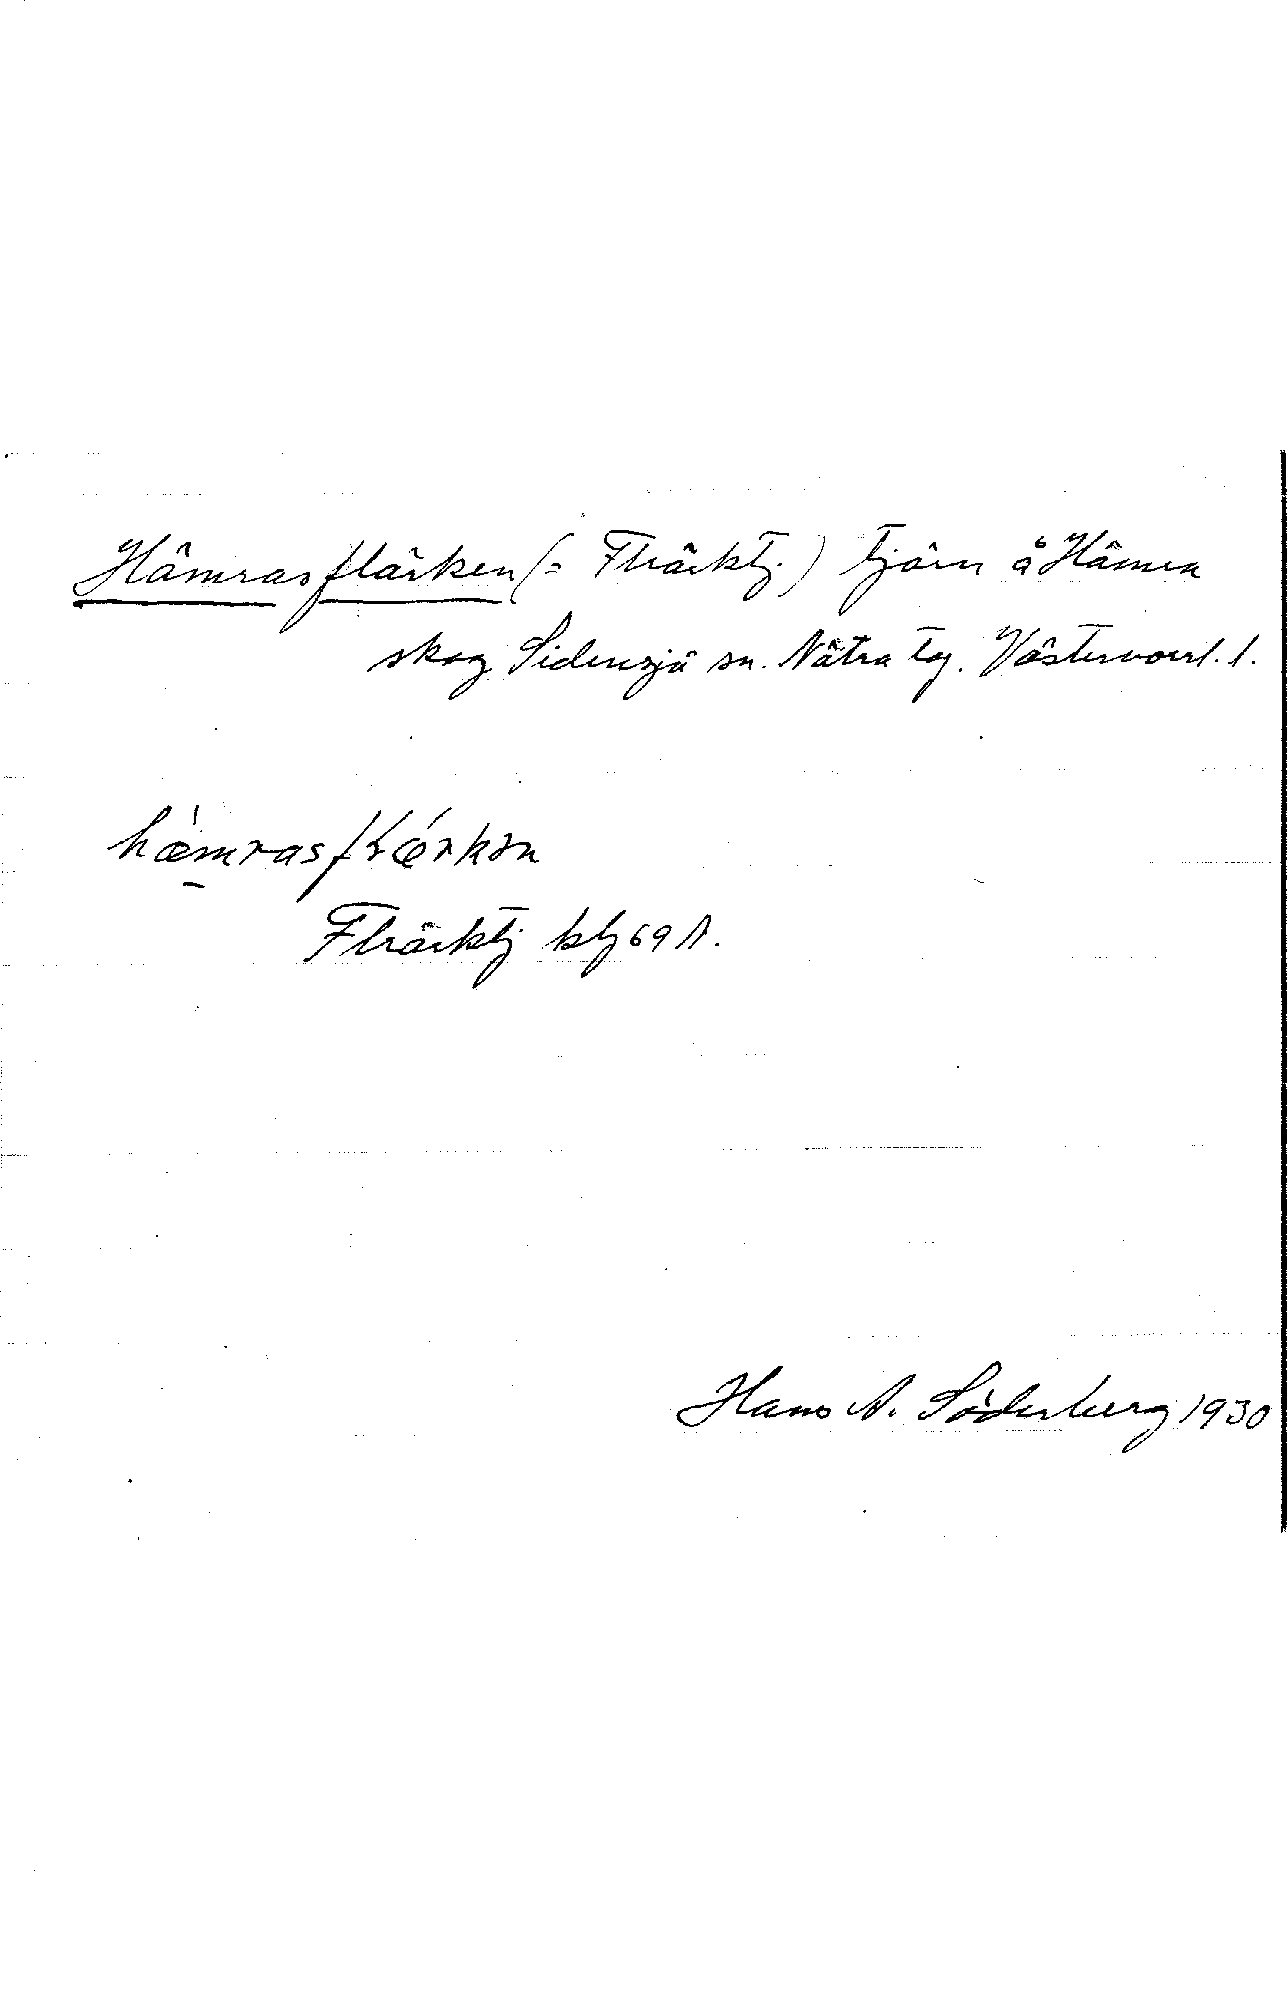 Hämrasflärken (= Flräcktj.) tjärn å Hämra
skog Sidensjö sn. Nätra tg. Västernorrl. l.
Flräcktj kbl 69 A.
Hans A. Söderberg 1930